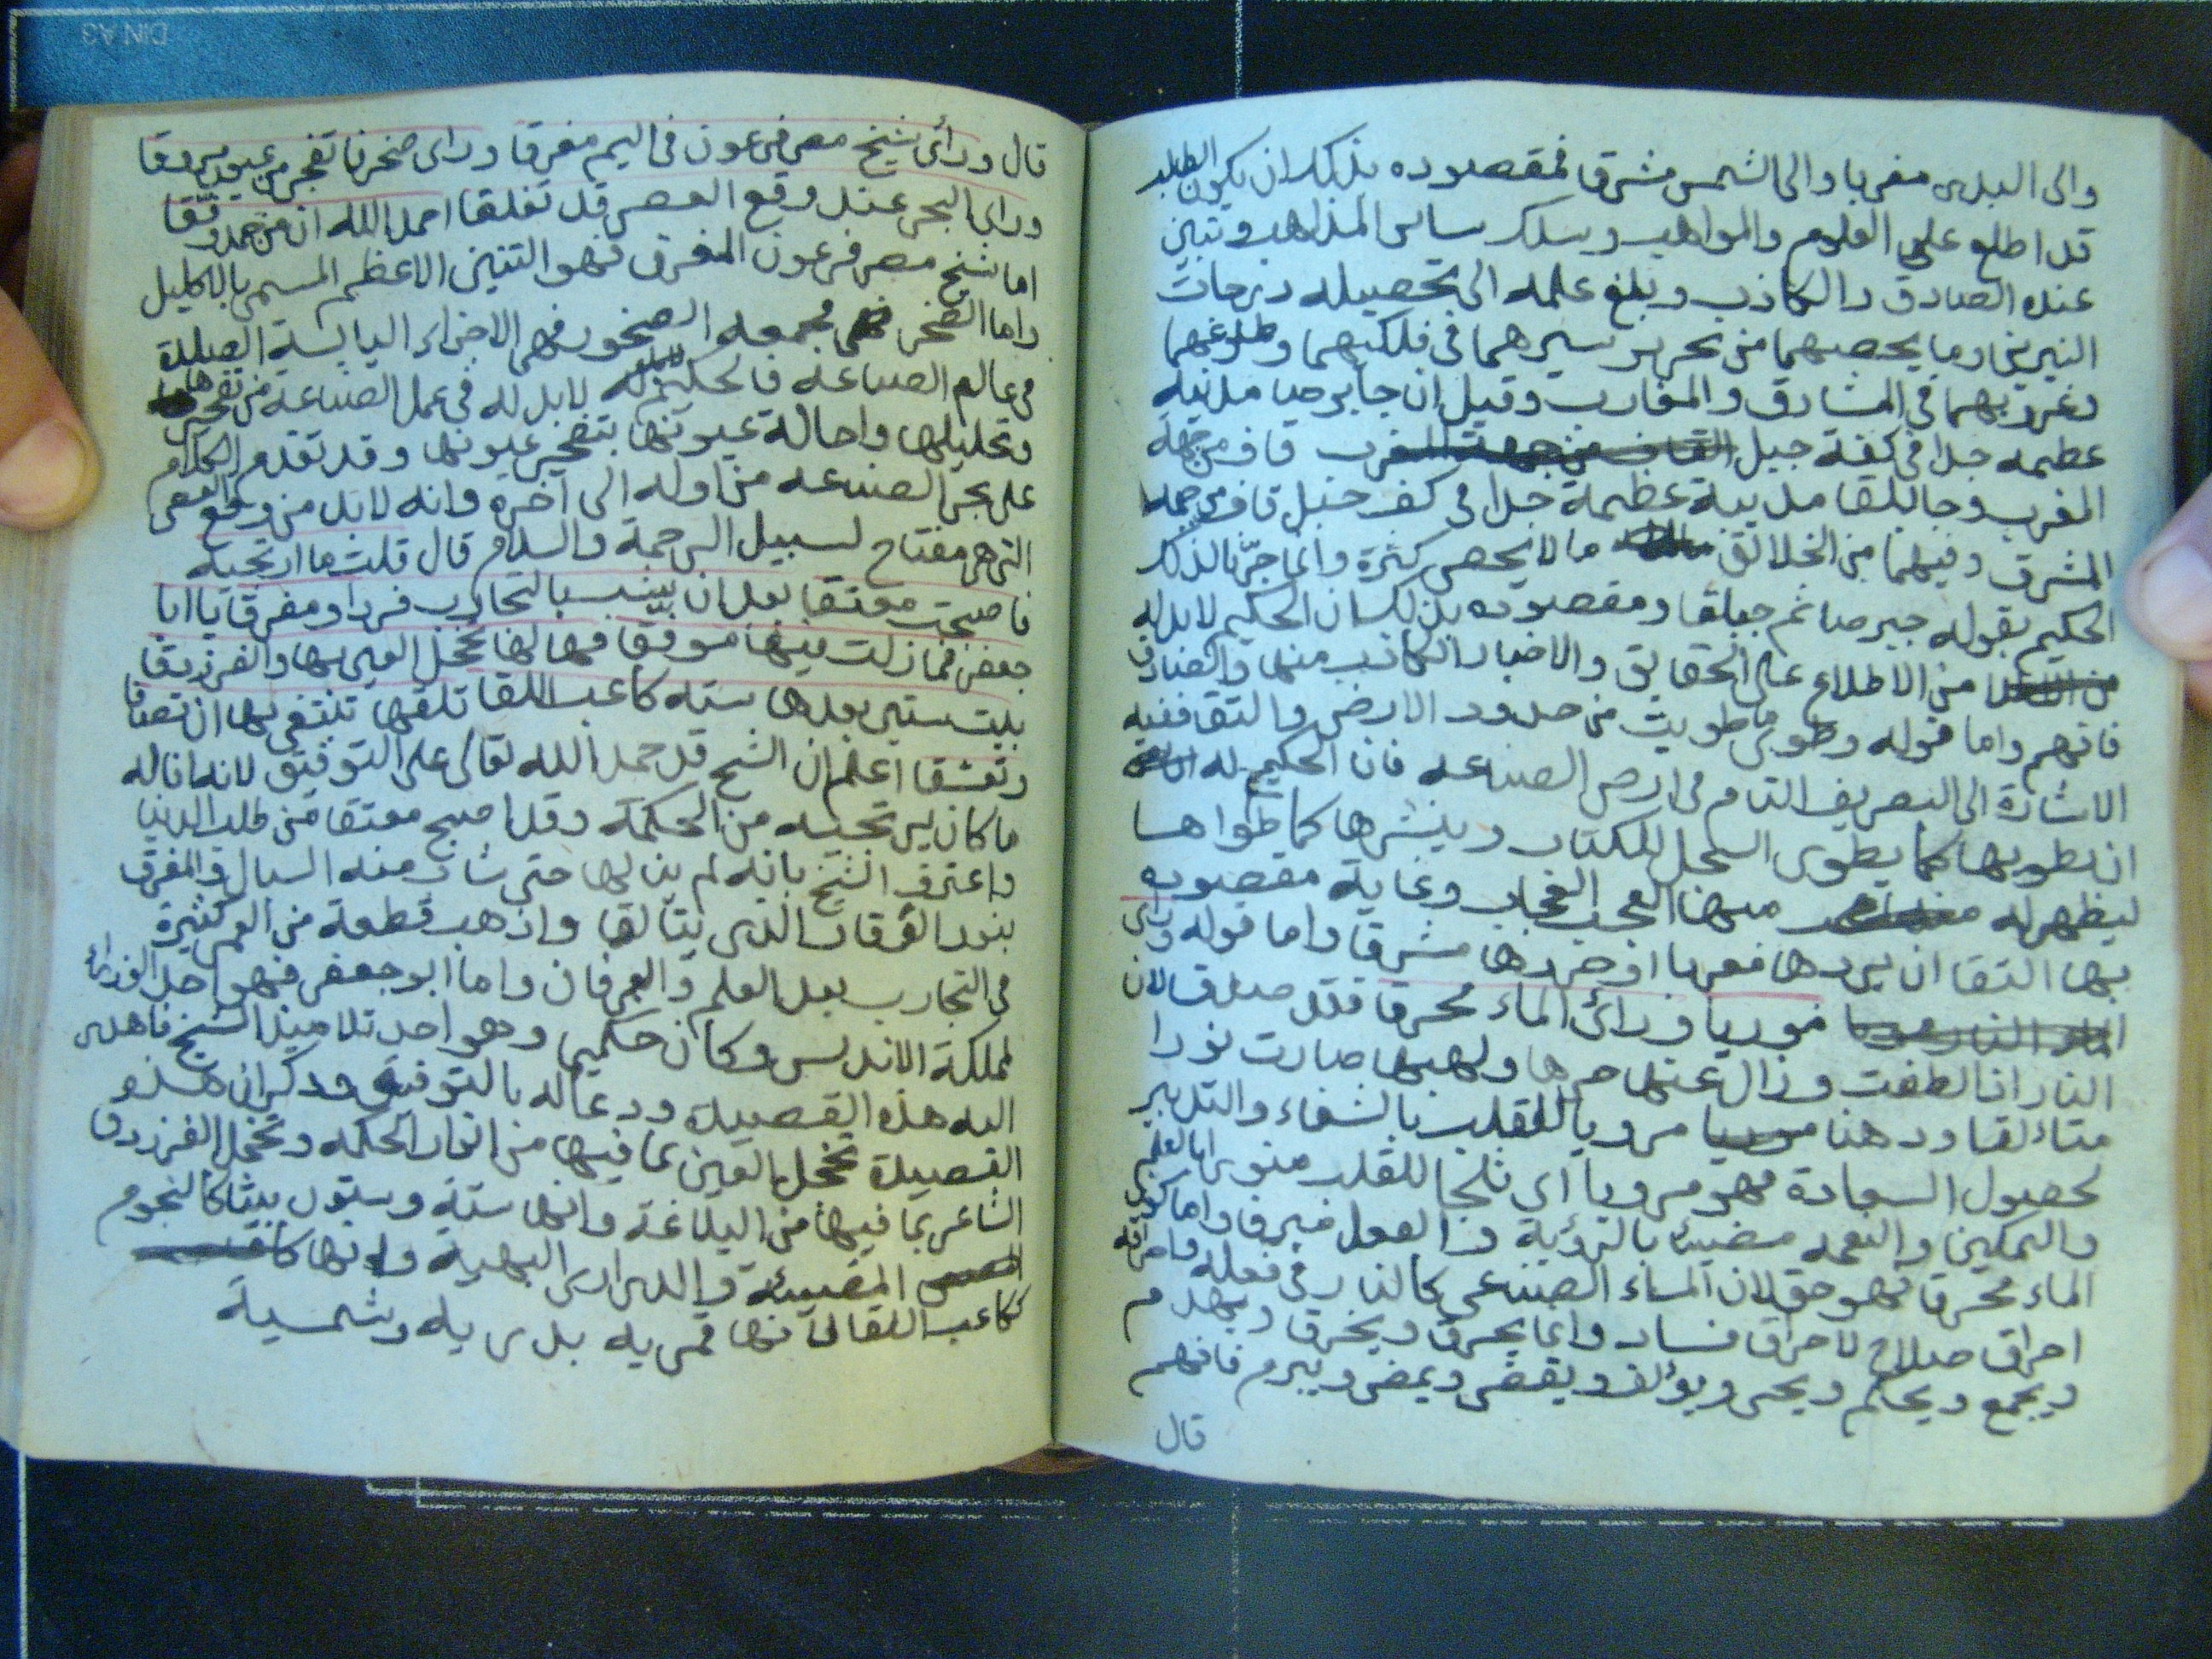 والى البدر مغربا والى الشمس مشرقا فمقصوده بذلك ان يكون الطالب
قد اطلع على العلوم والمواهب وسلك ساير المذاهب وتبين
عنده الصادق والكاذب وبلغ علمه الى تحصيله درجات
النيرين وما يخصهما من تحرير سيرهما في فلكيهما وطلوعهما
وغروبهما في المشارق والمغارب وقيل ان جابرصا مدينة
عظيمه جدا في كفة جبل قاف من جهة
المغرب وجابلقا مدينة عظيمة جدا في كفر جبل قاف من جهة
المشرق وفيهما من الخلائق ما لا يحصى كثرة وانما جرنا لذكر
الحكيم بقوله جبرصا ثم جبلقا ومقصوده بذلك ان الحكيم لا بد له
من الاطلاع على الحقايق والاخبار الكاذب منها والصادق
فافهم واما قوله وطوى ما طويت من حدود الارض والتقا ففيه
الاشارة الى التصريف التام في ارض الصناعه فان الحكيم له
ان يطويها كما يطوى السجل للكتاب وينشرها كما طواها
ليظهر له منها العجب العجاب وغاية مقصوده
بها التقا ان يردها مغربا اوخردها مشرقا واما قوله ورأى
النار مورىا ورائ الماء محرقا فقد صدق لان
النار اذا لطفت وزال عنها حرها ولهبها صارت نورا
متائلقا ودهنا مرويا للقلب بالشفاء والتدبير
لحصول السعادة فهو مرويا اي ثلجا للقلب منورا بالعلم
والتمكين والنعمه مضيئا بالرؤية والعول مبرقا واما كون
الماء محرقا فهو حق لان الماء الصناعي كالنار في فعله واحراقه
احراق صلاح لا احراق فساد وانما يحرق ويخرق ويهدم
ويجمع ويحلم ويحى ويؤلف ويقضى ويمضى ويبرم فافهم
قال
قال ورأى شيخ مصر فرعون في اليم مغرقا وراى صخرنا تفجر من عيون مروقا
وراى البحر عند وقع العصى قد تفلقا احمد الله ان من حمد وفقا
اما شيخ مصر فرعون المغرق فهو التنين الاعظم المسمى بالاكليل
واما الصخر فهى مجمعه الصخور فهي الاجزاء اليابسة الصلدة
في عالم الصناعه فالحكيم لا بد له في عمل الصناعة من تفجيرها
وتحليلها واحالة عيونها بتفجير عيونها وقد تقدم الكلام
على بحر الصناعه من اوله الى آخره وانه لا بد من وقع العصى
التي هي مفتاح لسبيل الرحمة والسلام قال قلت ما ارتجيه
فاصبحت معتقا بعد ان شبب بالتجارب فردا ومفرقا يا ابا
جعفر فما زلت فيها موفقا فها لها تخجل العين بها والفرزدقا
بيت ستين بعدها سته كاعب اللقا تلقها تنتفي بها ان تصدقا
وتعشقا اعلم ان الشيخ قد حمد الله تعالى على التوفيق لانه اناله
ما كان يرتجيه من الحكمة وقد اصبح معتقا من طلب الدنيا
واعترف الشيخ بانه لم ينلها حتى شاب منه السبال والمفرق
بنور القرقان الذى يتألقا واذهب قطعة من العمر كثيرة
في التجارب بعد العلم والعرفان واما ابو جعفر فهو احد الوزرائ
لمملكة الاندلس وكان حكيمى وهو احد تلاميذ الشيخ فاهدى
اليه هذه القصيدة ودعا له بالتوفيق وذكر ان هذه
القصيدة تخجل العين بما فيها من انوار الحكمه وتخجل الفرزدق
الشاعر بما فيها من البلاغة وانها ستة وستون بيتا كالنجوم
المضيئة والدرارى البهية وانها
ككاعب اللقا لآنها قمريه بدريه وشمسية